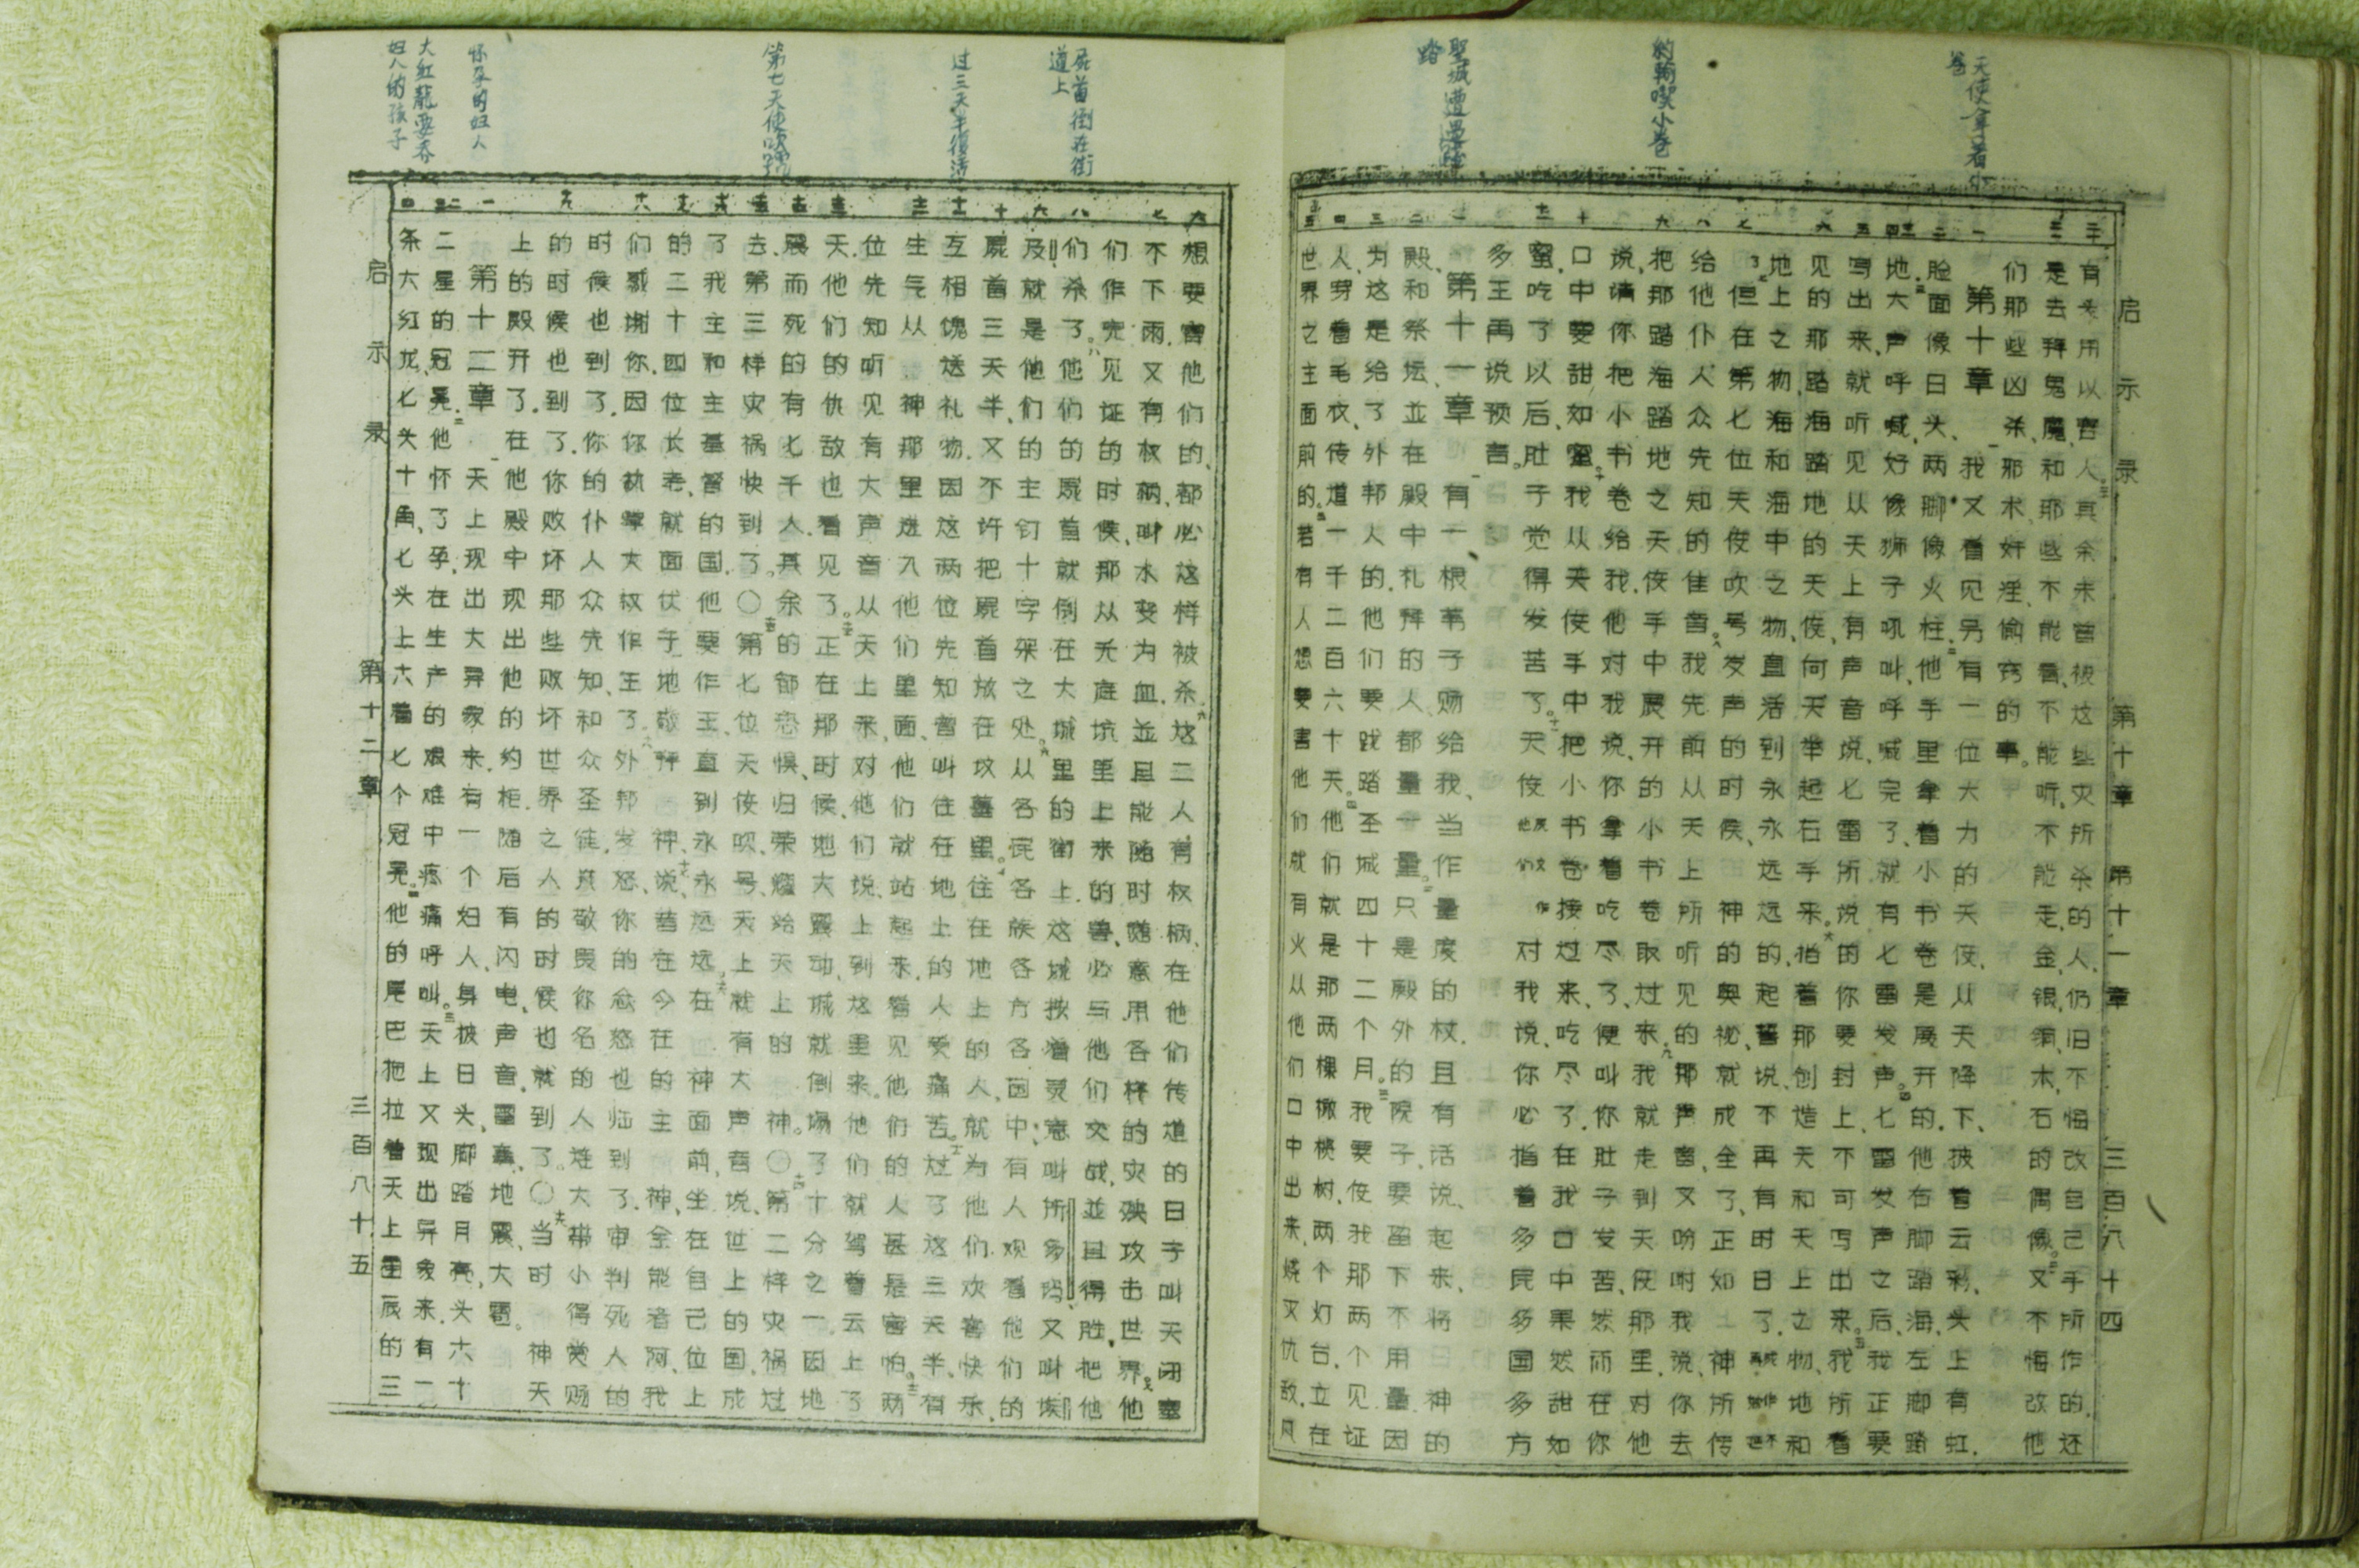 天使拿着小
卷
約翰喫小卷
聖城遭蹧
踏
启示录 第十章 第十一章 三百八十四
有火用以害人。其余未曾被这些灾所杀的人、仍旧不悔改自己手所作的、还
是去拜鬼魔、和那些不能看、不能听、不能走、金、银、铜、木、石的偶像。又不悔改他
们那些凶杀、邪术、奸淫、偷窃的事。
第十章 我又看见另有一位大力的天使、从天降下、披着云彩、头上有虹、
脸面像日头、两脚像火柱、他手里拿着小书卷是展开的、他右脚踏海、左脚踏
地。大声呼喊、好像狮子吼叫、呼喊完了、就有七雷发声。七雷发声之后、我正要
写出来、就听见从天上有声音说、七雷所说的你要封上、不可写出来。我所看
见的那踏海踏地的天使、向天举起右手来。指着那创造天和天上之物、地和
地上之物、海和海中之物、直活到永永远远的、起誓说、不再有时日了、
但在第七位天使吹号发声的时候、神的奥祕、就成全了、正如神所传
给他仆人众先知的佳音。我先前从天上所听见的那声音、又吩咐我说、你去
把那踏海踏地之天使手中展开的小书卷取过来。我就走到天使那里、对他
说、请你把小书卷给我、他对我说、你拿着吃尽了、便叫你肚子发苦、然而在你
口中要甜如蜜。我从天使手中把小书卷接过来、吃尽了、在我口中果然甜如
蜜、吃了以后、肚子觉得发苦了。天使对我说、你必指着多民多国多方
多王再说预言。
第十一章 有一根苇子赐给我、当作量度的杖、且有话说、起来、将神的
殿、和祭坛、並在殿中礼拜的人、都量一量。只是殿外的院子、要留下不用量、因
为这是给了外邦人的、他们要践踏圣城四十二个月。我要使我那两个见证
人、穿着毛衣、传道一千二百六十天。他们就是那两棵橄榄树、两个灯台、立在
世界之主面前的。若有人想要害他们、就有火从他们口中出来、烧灭仇敌、凡
屍首倒在街
道上
过三天半復活
第七天使吹号
怀孕的妇人
大红龍要吞
妇人的孩子
想要害他们的、都必这样被杀。这二人有权柄、在他们传道的日子叫天闭塞
不下雨、又有权柄、叫水变为血、並且能随时随意用各样的灾殃攻击世界。他
们作完见证的时候、那从无底坑里上来的兽、必与他们交战、並且得胜、把他
们杀了。他们的屍首就倒在大城里的街上、这城按着灵意叫所多玛、又叫埃
及、就是他们的主钉十字架之处。从各民各族各方各国中、有人观看他们的
屍首三天半、又不许把屍首放在坟墓里。住在地上的人、就为他们欢喜快乐、
互相馈送礼物、因这两位先知曾叫住在地上的人受痛苦。过了这三天半、有
生气从神那里进入他们里面、他们就站起来、看见他们的人甚是害怕。两
位先知听见有大声音从天上来、对他们说、上到这里来、他们就驾着云上了
天、他们的仇敌也看见了。正在那时候、地大震动、城就倒塌了十分之一、因地
震而死的有七千人、其余的都恐惧、归荣耀给天上的神。〇第二样灾祸过
去、第三样灾祸快到了。〇第七位天使吹号、天上就有大声音说、世上的国成
了我主和主基督的国、他要作王直到永永远远。在神面前、坐在自己位上
的二十四位长老、就面伏于地敬拜神、说、昔在今在的主神、全能者阿、我
们感谢你、因你执掌大权作王了。外邦发怒、你的忿怒也临到了、审判死人的
时候也到了、你的仆人众先知、和众圣徒、凡敬畏你名的人连大带小得赏赐
的时候也到了、你败坏那些败坏世界之人的时候也就到了。〇当时神天
上的殿开了、在他殿中现出他的约柜、随后有闪电、声音、雷轰、地震、大雹。
第十二章 天上现出大异象来、有一个妇人、身披日头、脚踏月亮、头六十
二星的冠冕。他怀了孕、在生产的艰难中疼痛呼叫。天上又现出异象来、有一
条大红龙、七头十角、七头上六着七个冠冕。他的尾巴把拉着天上星辰的三
启示录 第十二章 三百八十五